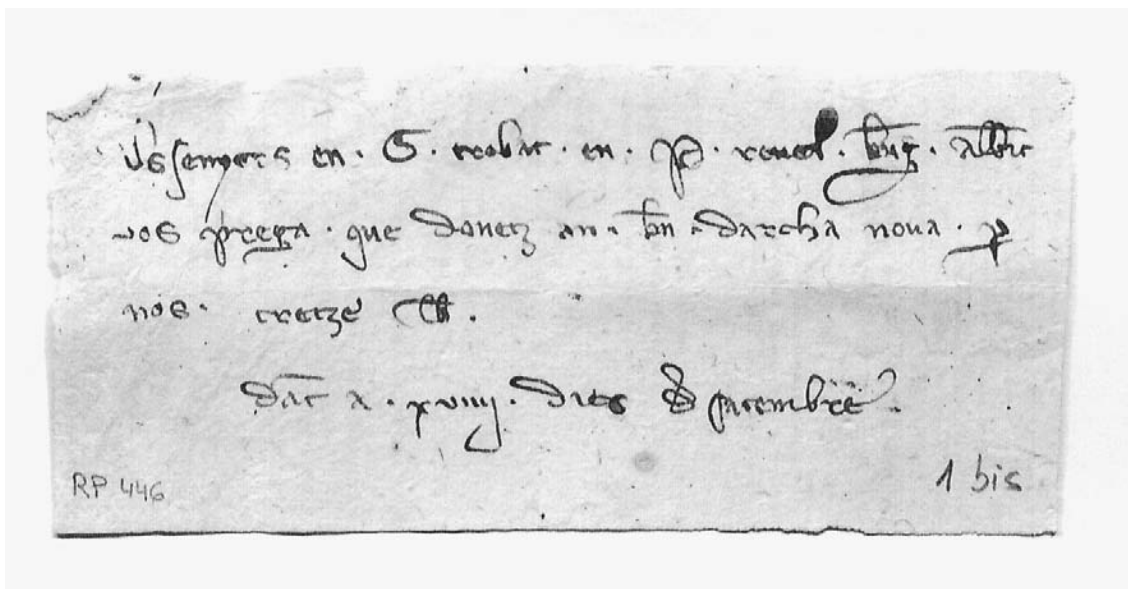 senyers en · G · trobat · en · P · revel ·
vos prega · que donetz an · bn · darcha nova · p
nos · tretze lb ·
dat a · xviiij · dies d setembre ·
RP 446
1 bis